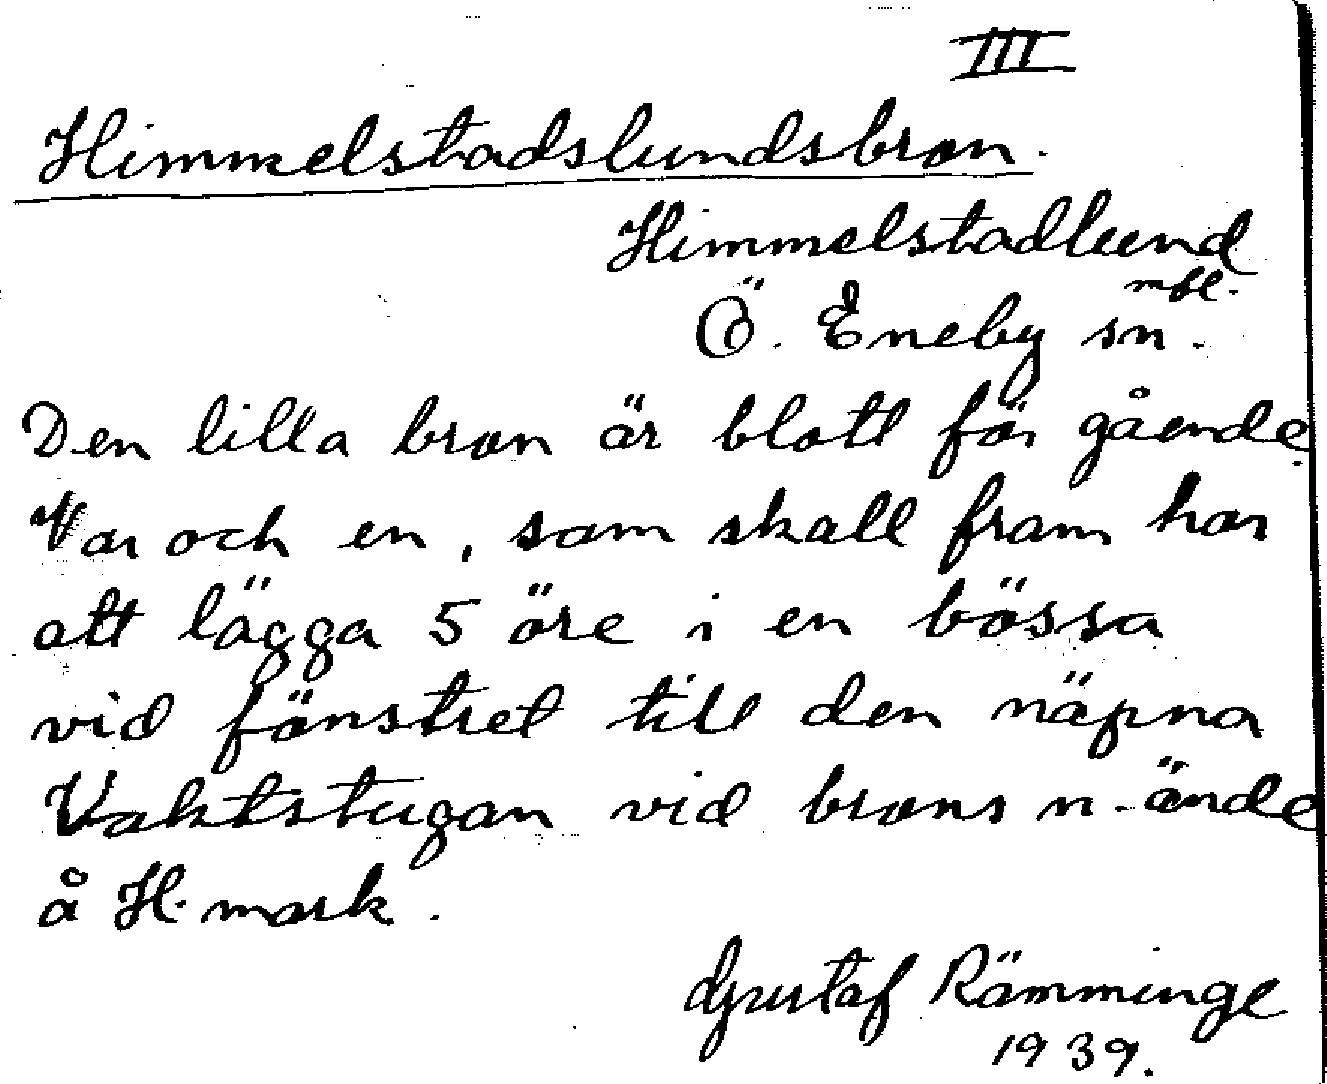 III
Himmelstadslundsbron.
Himmelstadlund
mbl.
Ö. Eneby sn.
Den lilla bron är blott för gående.
Var och en, som skall fram har
att lägga 5 öre i en bössa
vid fönstret till den näpna
Vaktstugan vid brons n-ände
å H. mark.
Gustaf Rämminge
1939.